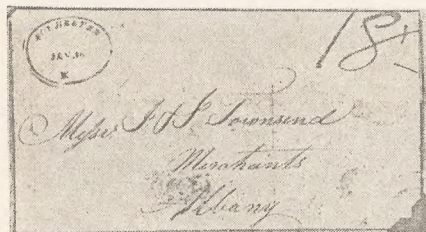 ROCHESTER
JAN. 16
18½
Messrs I & J Townsend
Merchants
Albany